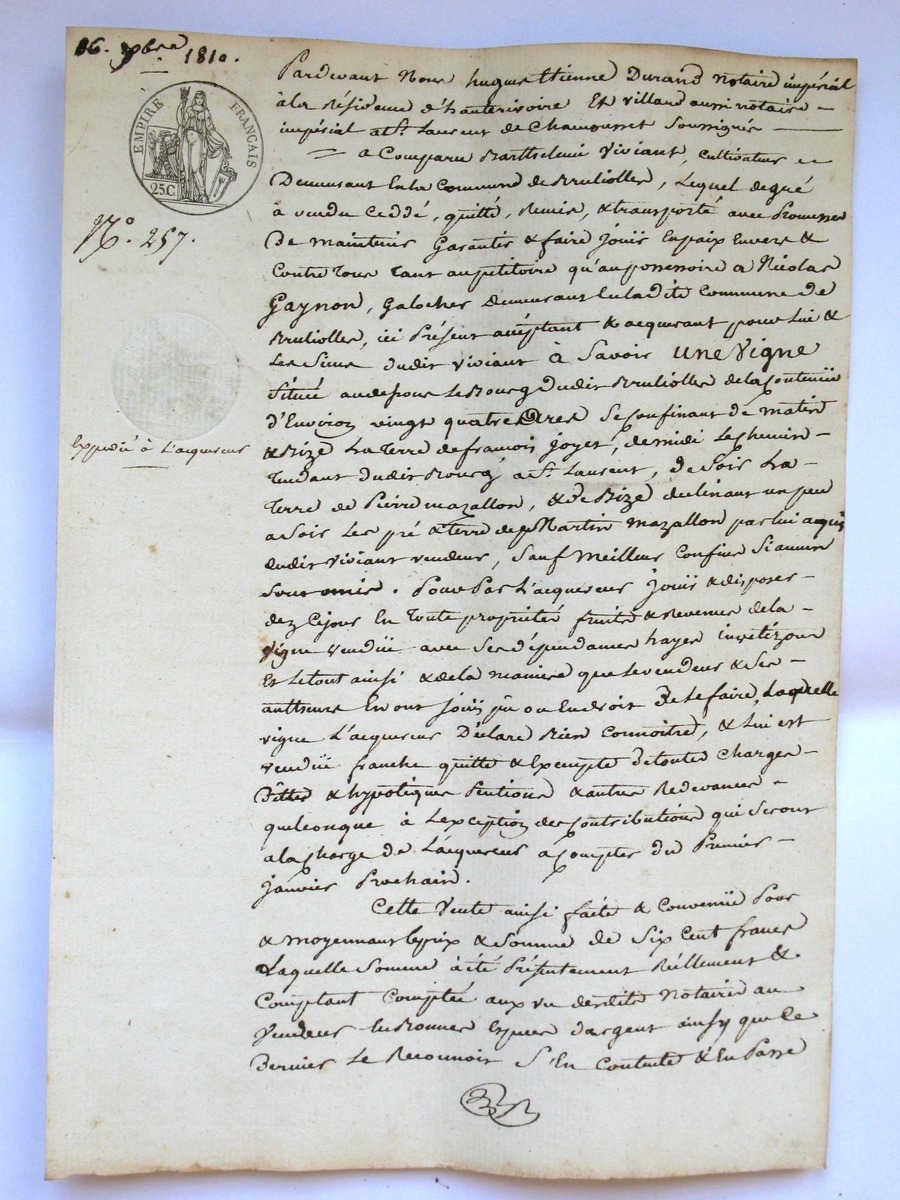 16. 9bre 1810.
EMPIRE FRANÇAIS
25C
N.º 257.
Expedié à L'acquereur
Pardevant Nous hugues Etienne Durand Notaire impérial
à la Résidence d'hauterivoire Et Villard aussi notaire
impérial a St. Laurent de Chamousset Soussignés
a Comparu Barthelemi Viviant, cultivateur
Demeurant En la Commune de Brulioles, Lequel de gré
à vendu Ceddé, quitté, Remis, & transporté avec Promesse
De maintenir Garantir & faire Jouïr En paix Envers &
Contre Tous Tant au petitoire qu'au possessoire a Nicolas
Gaynon, Galocher Demeurant En la dite Commune de
Brulioles, ici Présent acceptant & acquerant pour Lui &
Les Siens dudit Viviant à Savoir une Vigne
Située au dessous Le Bourg dudit Brulioles de la Contenüe
d'Environ vingt quatre Ares Se Confinant de matin
& Bize La Terre de françois Joyet, de midi Le chemin
Tendant dudit Bourg a St. Laurent, de Soir La
Terre de Pierre mazallon, & de Bize declinant un peu
a Soir Les pré & Terre de Martin Mazallon par lui acquis
dudit Viviant vendeur, Sauf Meilleurs Confins Si aucuns
Sont omis. Pour Par L'acquereur Jouïr & disposer
dez Ce jour En Toute propriété fruits & Revenus de la
vigne Vendüe avec Ses dépendances hayes
Et Le tout ainsi & de la maniere que Le vendeur & Ses
autheurs En ont Jouï pu ou En droit De Le faire, Laquelle
vigne L'acquereur Déclare Bien Connoitre, & Lui est
Vendüe franche quitte & Exempte de toutes Charges
Dettes & hypotéques Pentions & autres Redevances
quelconque à L'exception des Contributions qui Seront
a la Charge de L'acquereur a Compter du Premier
Janvier Prochain.
Cette Vente ainsi faite & Convenüe Pour
& moyennant le prix & Somme de Six Cent francs
Laquelle Somme à été Présentement Réellement &
Comptant Comptée aux vu desdits Notaires au
Vendeur En Bonnes Espèces d'argent ainsy que Ce
Dernier Le Reconnoit S'En Contente & En Passe